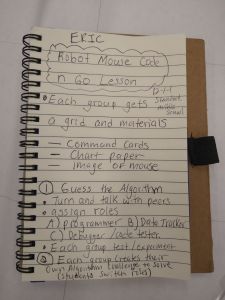 ERIC
Robot Mouse Code
n Go Lesson
• Each group gets
a grid and materials
— Command Cards
— Chart paper
image of mouse
① Guess the Algorithm
• Turn and talk with peers
• assign roles
A) programmer B) Data Tracker
C) Debugger / code tester
• Each group test/experiment
② Each group creates their
own Algorithm challenge to solve
(students switch roles)